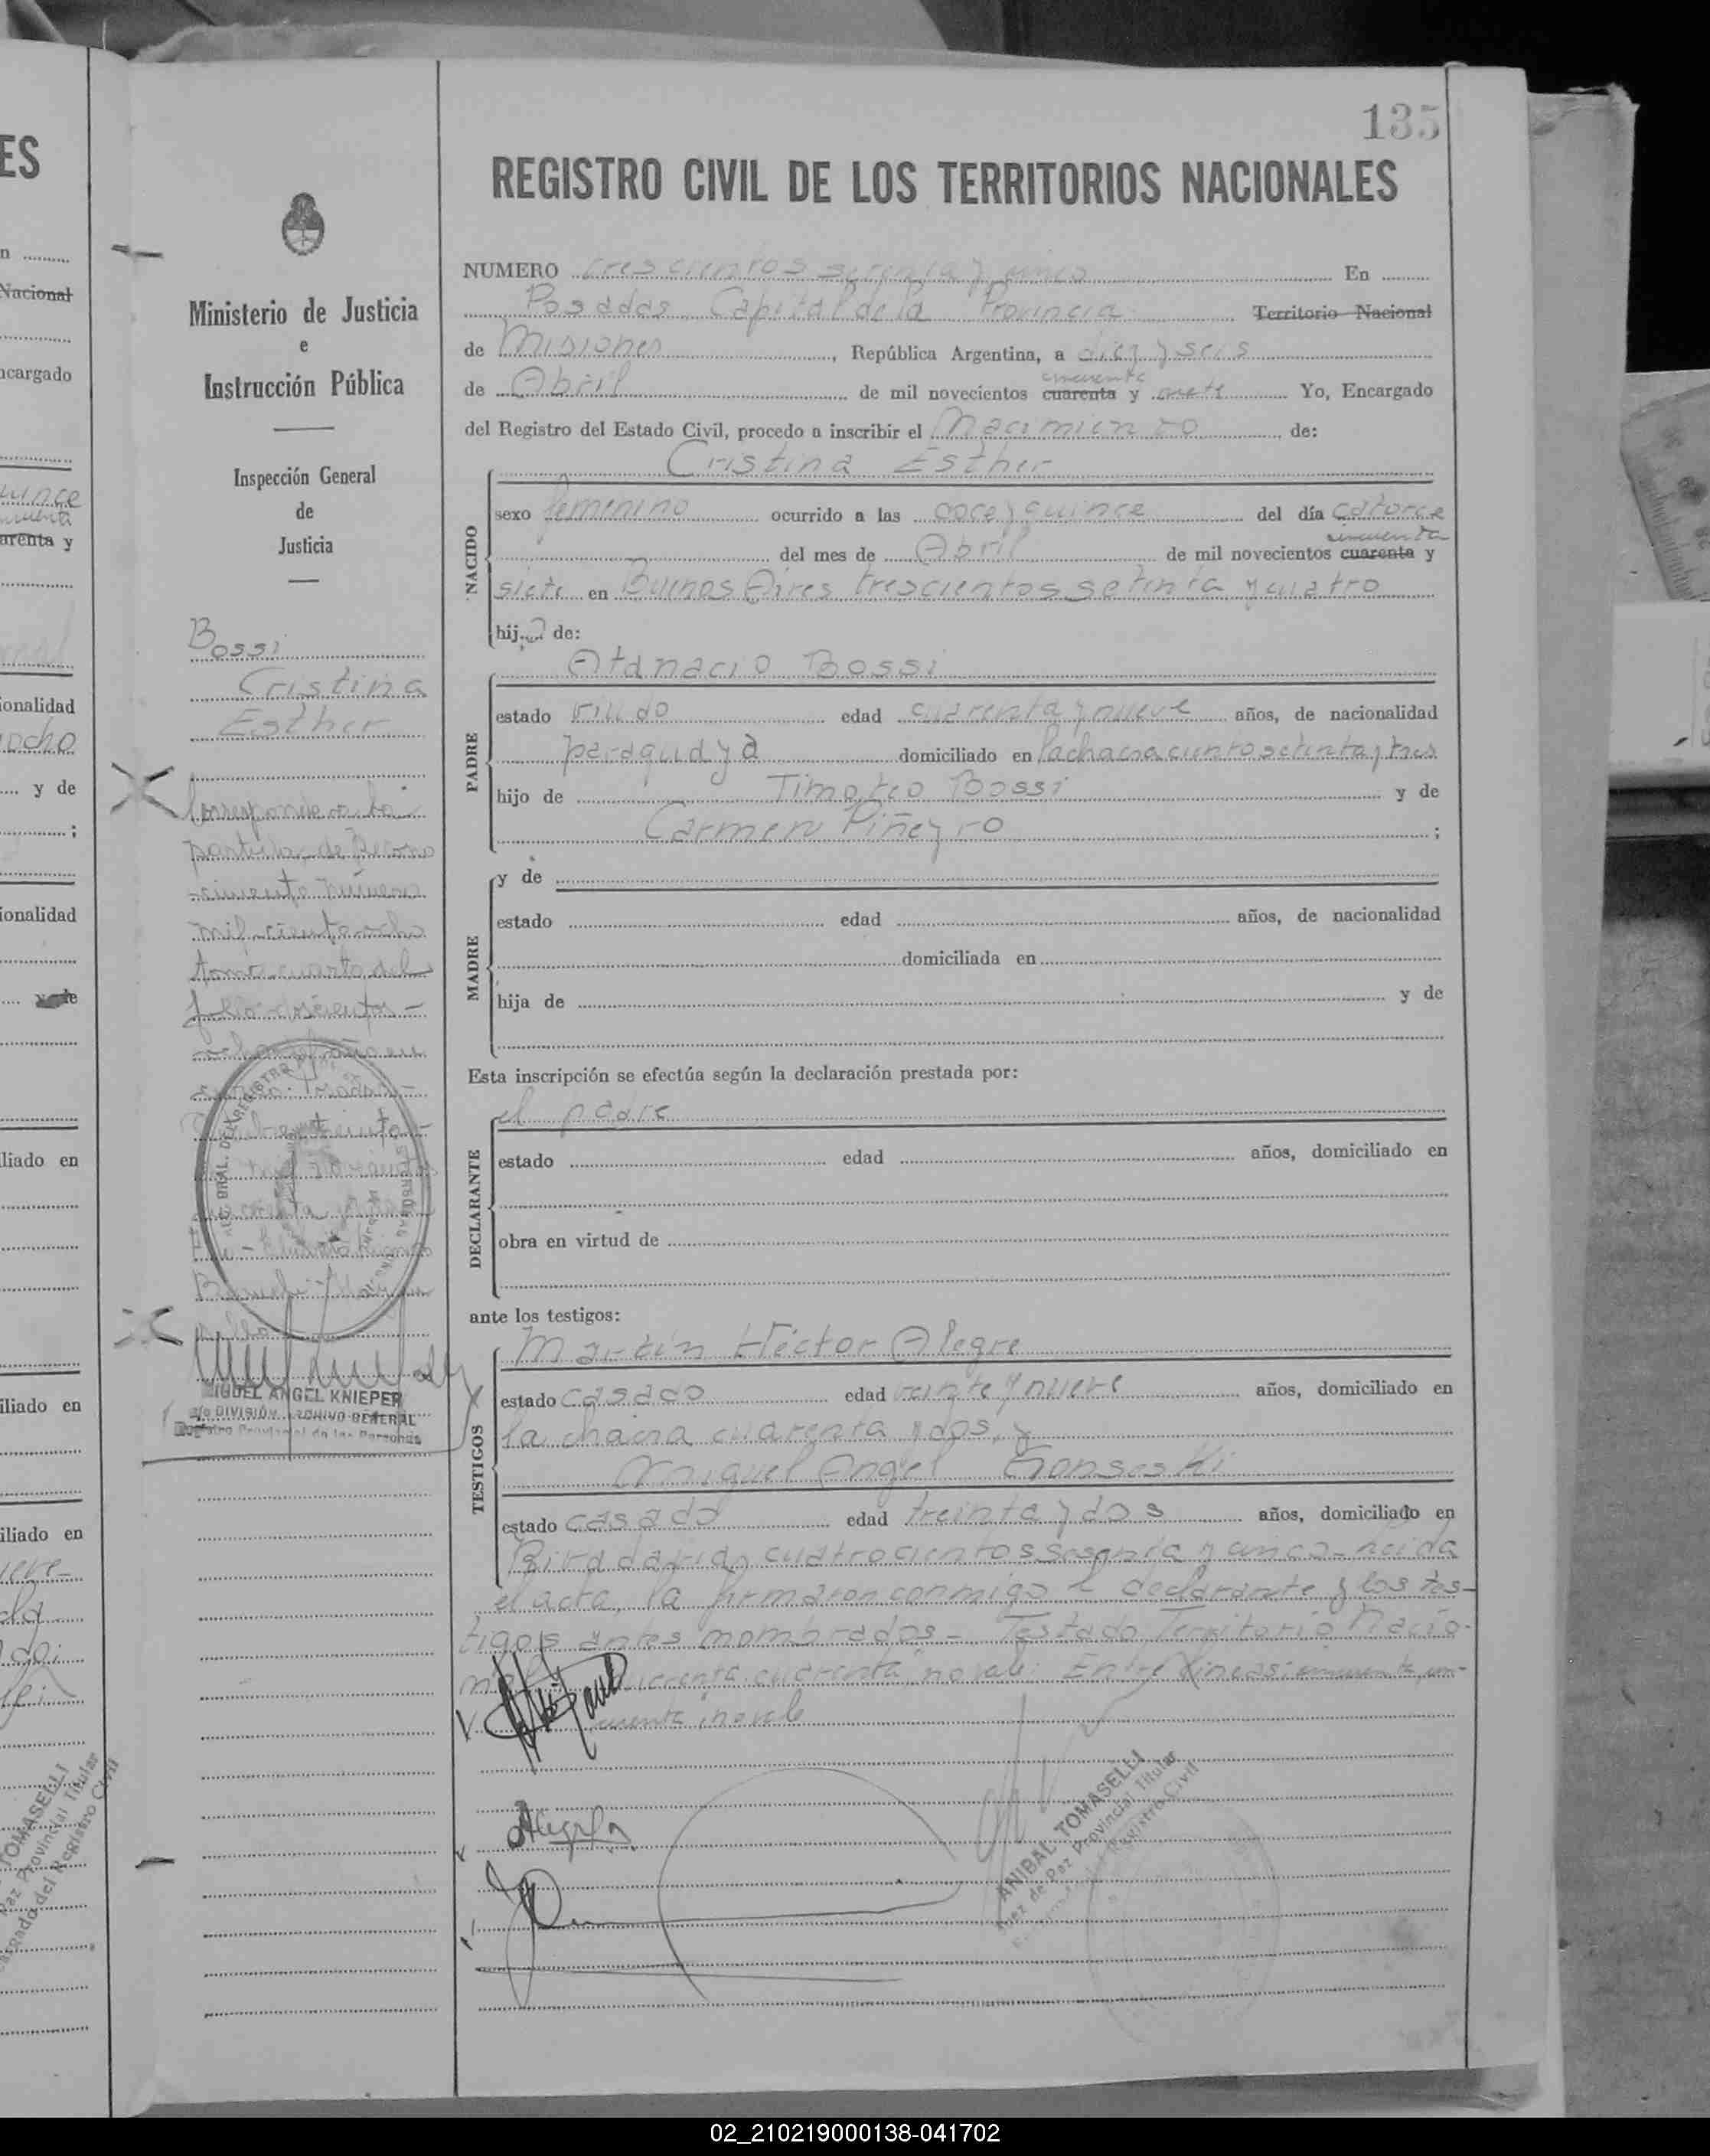 135
REGISTRO CIVIL DE LOS TERRITORIOS NACIONALES
Ministerio de Justicia
e
Instrucción Pública
Inspección General
de
Justicia
Bossi
Cristina
Esther
Corresponde a la
partida de Recono
-cimiento número
mil ciento ocho
tomo cuarto del
folio doscientos -
MIGUEL ANGEL KNIEPER
DIVISIÓN ARCHIVO GENERAL
Registro Provincial de las Personas
NUMERO trescientos setenta y cinco En
Posadas, Capital de la Provincia Territorio Nacional
de Misiones, República Argentina, a diez y seis
cincuenta
de Abril de mil novecientos cuarenta y siete Yo, Encargado
del Registro del Estado Civil, procedo a inscribir el Nacimiento de:
Cristina Esther
NACIDO
sexo femenino ocurrido a las doce y quince del día catorce
cincuenta
del mes de Abril de mil novecientos cuarenta y
siete en Buenos Aires trescientos setenta y cuatro
hij.a de:
Atanacio Bossi
PADRE
estado viudo edad cuarenta y nueve años, de nacionalidad
paraguaya domiciliado en la chacra ciento setenta y tres
hijo de Timoteo Bossi y de
Carmen Piñeyro ;
MADRE
y de
estado edad años, de nacionalidad
domiciliada en
hija de y de
Esta inscripción se efectúa según la declaración prestada por:
el padre
DECLARANTE
estado edad años, domiciliado en
obra en virtud de
ante los testigos:
Martín Héctor Alegre
TESTIGOS
estado casado edad veinte y nueve años, domiciliado en
la chacra cuarenta y dos, y
Miguel Angel
estado casado edad treinta y dos años, domiciliado en
Rivadavia, cuatrocientos sesenta y cinco - Leida
el acta, la firmaron conmigo el declarante y los tes-
tigos antes nombrados - Testado, Territorio Nacio-
nal cuarenta, cuarenta, no vale: Entre lineas: cincuenta, cin-
cuenta: vale
ANIBAL TOMASELLI
Juez de Paz Provincial Titular
Encargado del Registro Civil
02_210219000138-041702